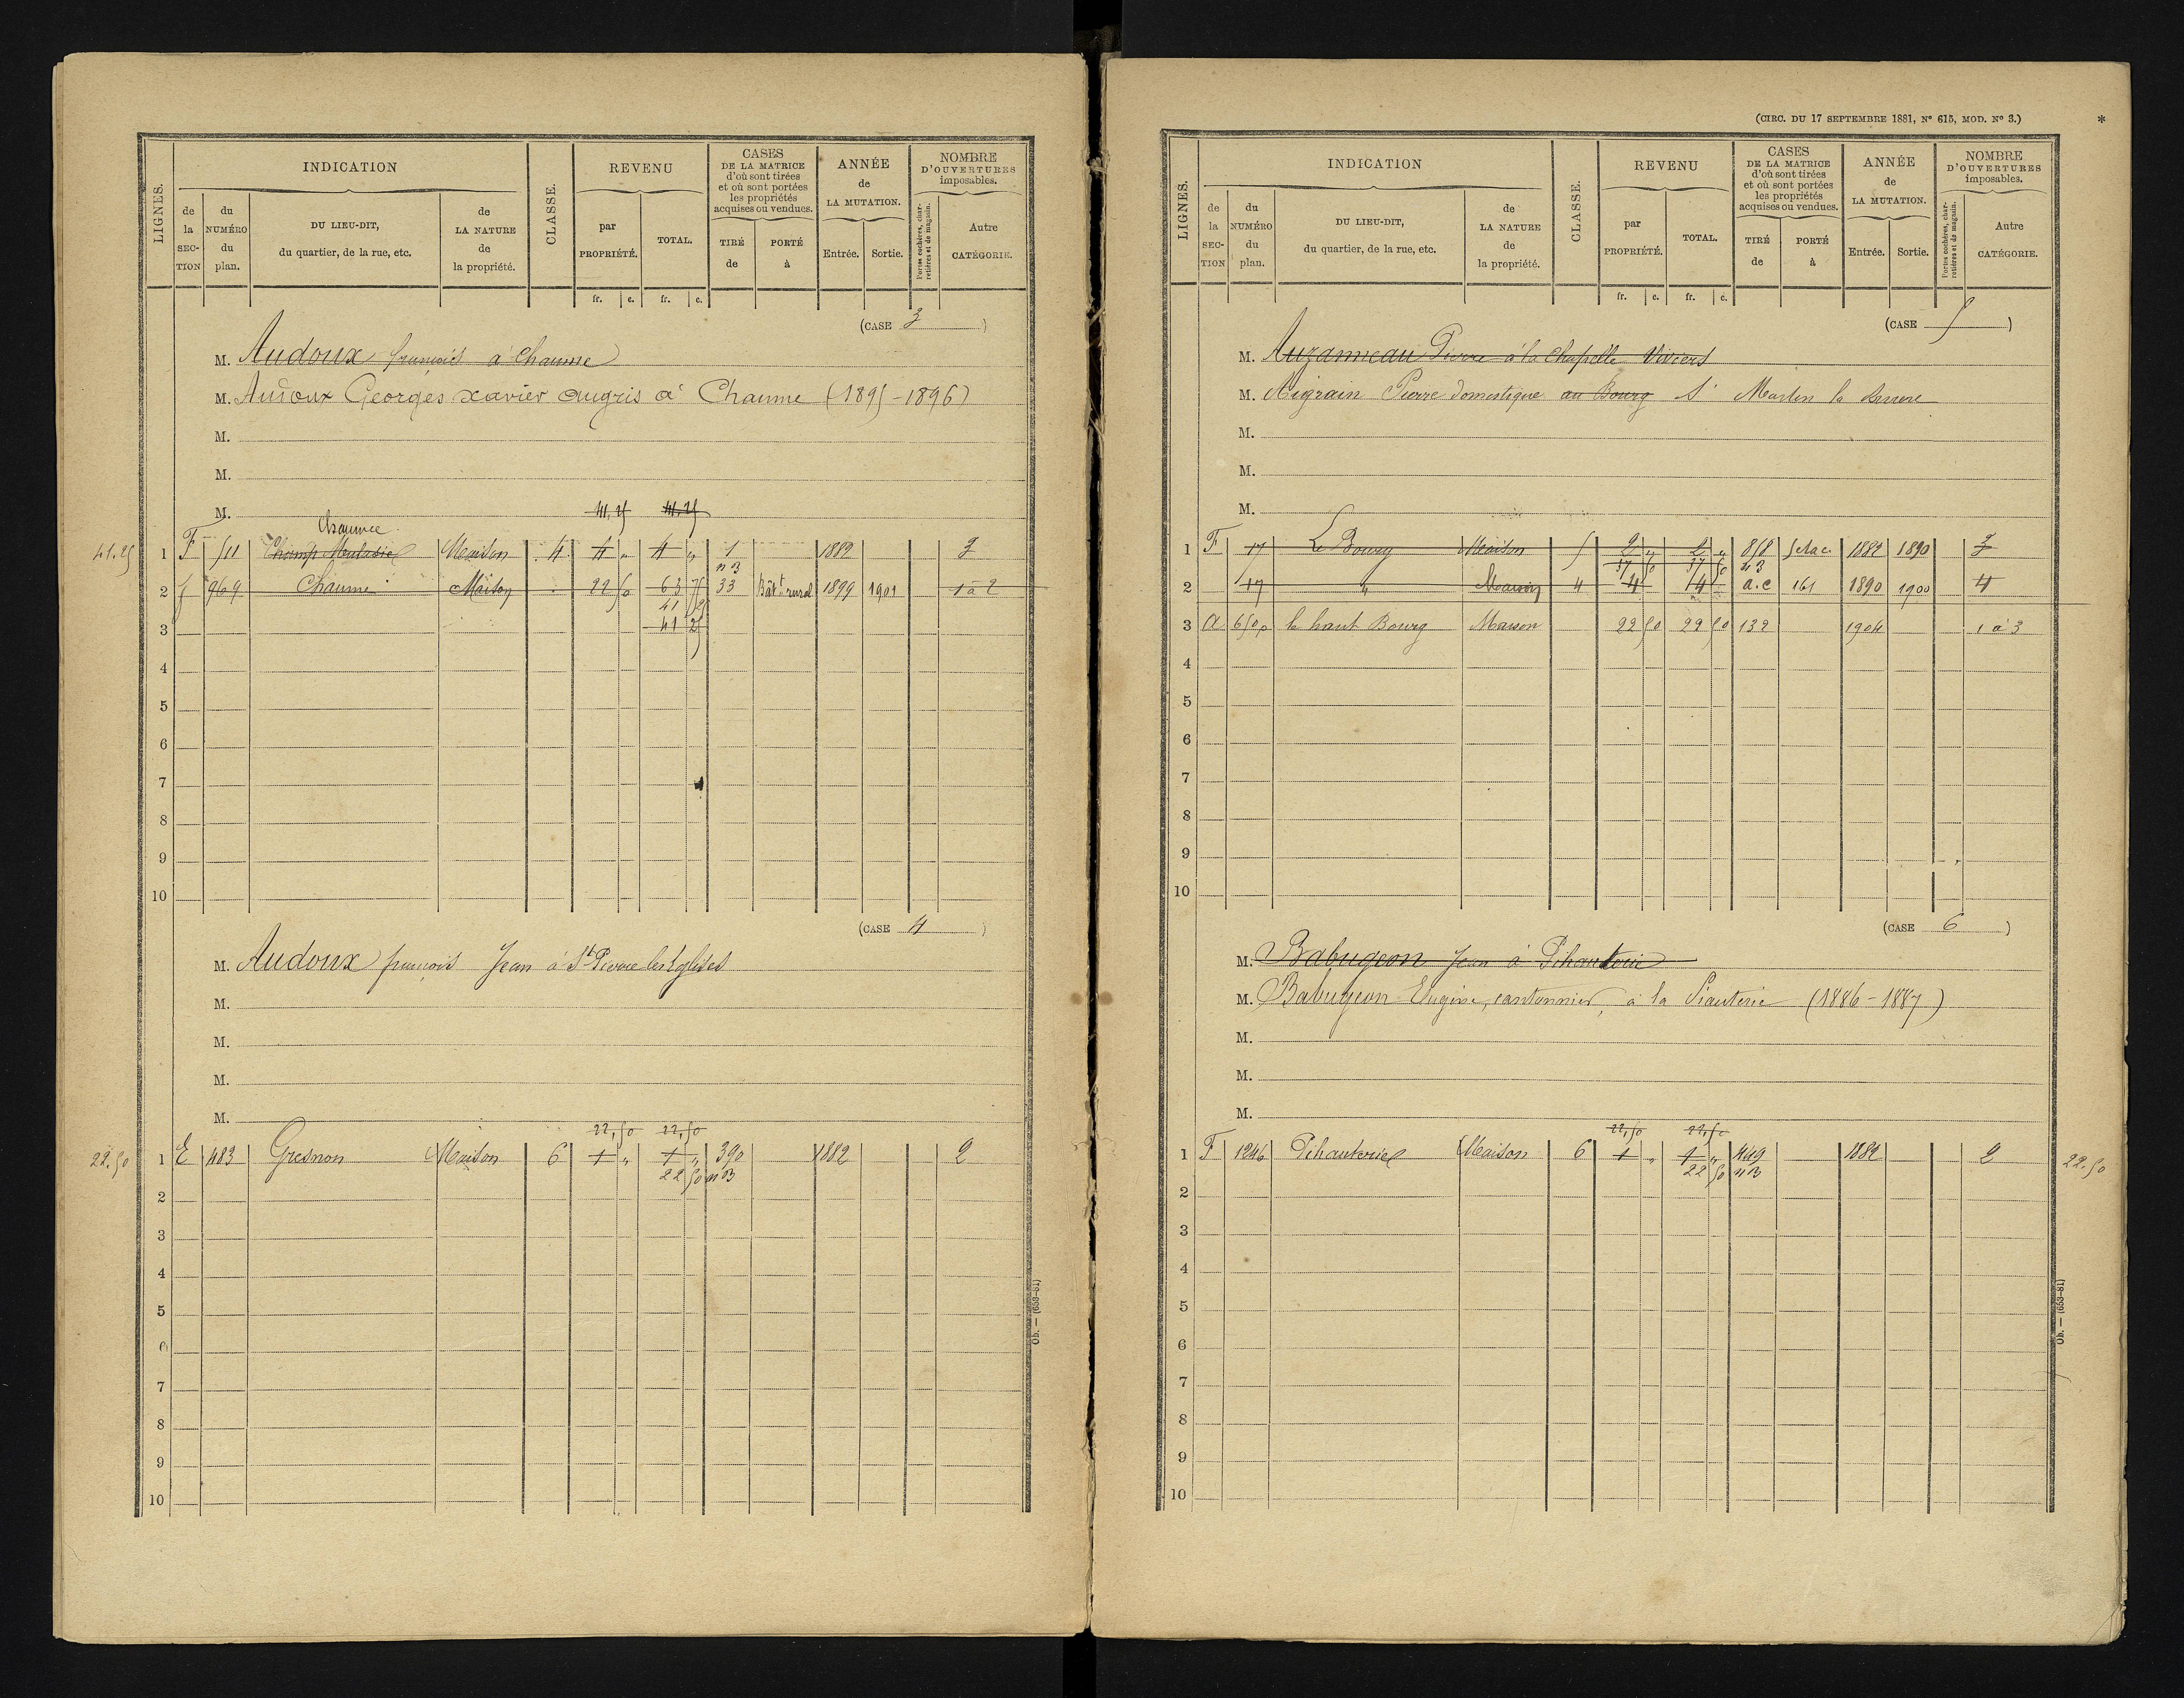 LIGNES.
INDICATION
de la SECTION
du NUMÉRO du plan.
DU LIEU-DIT, du quartier, de la rue, etc.
de LA NATURE de la propriété.
CLASSE.
REVENU
par PROPRIÉTÉ.
TOTAL.
fr. c. fr. c.
CASES DE LA MATRICE d'où sont tirées et où sont portées les propriétés acquises ou vendues.
TIRÉ de
PORTÉ à
ANNÉE de LA MUTATION.
Entrée. Sortie.
NOMBRE D'OUVERTURES imposables.
Portes cochères, charretières et de magasin.
Autre CATÉGORIE.
(CASE 3)
M. Audoux françois à Chaume
M. Audoux Georges Xavier Augris à Chaume (1895-1896)
M.
M.
M. 41,25 41,25
Chaume
41.25 1 F 511 Maison 4 4 " 4 " 1 1882 3
n B
2 f 969 Chaume Maison 22 50 63 75 33 Bât.t rural 1899 1901 1 à 2
41 25
3 41 25
4
5
6
7
8
9
10
(CASE 4)
M. Audoux françois Jean à St Pierre les Eglises
M.
M.
M.
M.
22,50 22,50
22.50 1 E 483 Gresnon Maison 6 1 " 1 " 390 1882 2
22 50 n B
2
3
4
5
6
7
8
9
10
Ob. — (653-81)
(CIRC. DU 17 SEPTEMBRE 1881, N° 615, MOD. N° 3.) *
LIGNES.
INDICATION
de la SECTION
du NUMÉRO du plan.
DU LIEU-DIT, du quartier, de la rue, etc.
de LA NATURE de la propriété.
CLASSE.
REVENU
par PROPRIÉTÉ.
TOTAL.
fr. c. fr. c.
CASES DE LA MATRICE d'où sont tirées et où sont portées les propriétés acquises ou vendues.
TIRÉ de
PORTÉ à
ANNÉE de LA MUTATION.
Entrée. Sortie.
NOMBRE D'OUVERTURES imposables.
Portes cochères, charretières et de magasin.
Autre CATÉGORIE.
(CASE 5)
M. Auzanneau Pierre à la Chapelle Viviers
M. Aigrain Pierre domestique au Bourg St Martin la
M.
M.
M.
1 F 17 Le Bourg Maison 5 2 " 2 " 858 1882 1890 3
37 50 37 50
2 17 " Maison 4 4 14 a.c 161 1890 1900 4
3 a 650p le haut Bourg Maison 22 50 22 50 132 1904 1 à 3
4
5
6
7
8
9
10
(CASE 6)
M. Babugeon Jean à Pihauterie
M. Babugeon Eugène, cantonnier, à la Piauterie (1886-1887)
M.
M.
M.
22,50 22,50
1 F 1246 Pihauterie Maison 6 1 " 1 " 449 1882 2 22.50
22 50 n B
2
3
4
5
6
7
8
9
10
Ob. — (653-81)